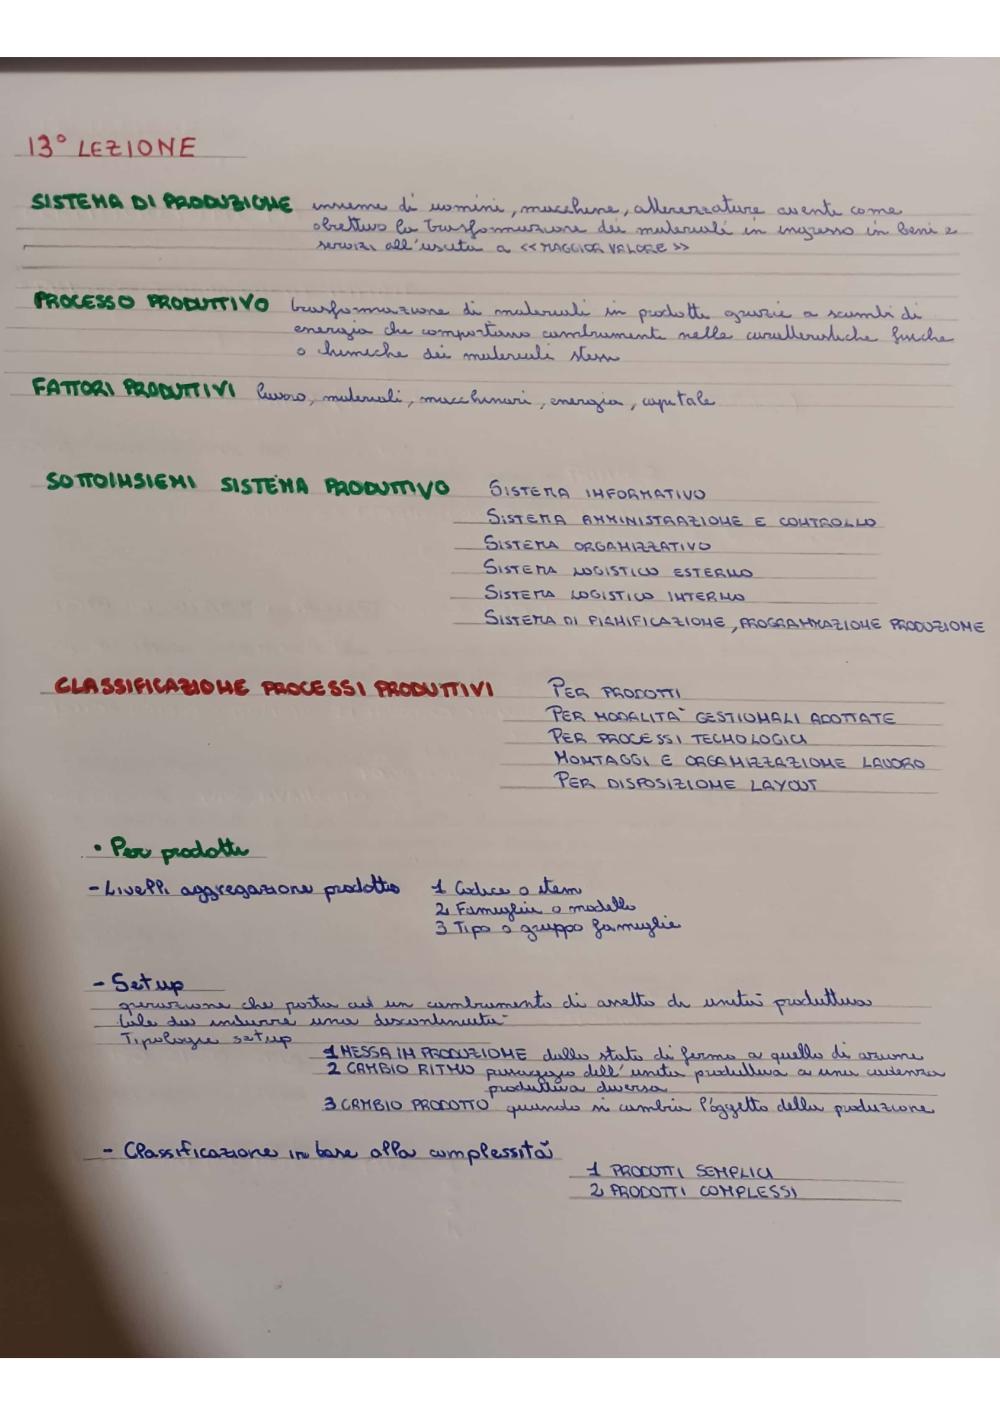 13° LEZIONE
SISTEMA DI PRODUZIONE insieme di uomini, macchine, attrezzature avente come
obiettivo la trasformazione dei materiali in ingresso in beni e
servizi all'uscita a <<MAGGIOR VALORE>>
PROCESSO PRODUTTIVO trasformazione di materiali in prodotti grazie a scambi di
energia che comportano cambiamenti nelle caratteristiche fisiche
o chimiche dei materiali stessi
FATTORI PRODUTTIVI lavoro, materiali, macchinari, energia, capitale
SOTTOINSIEMI SISTEMA PRODUTTIVO SISTEMA INFORMATIVO
SISTEMA AMMINISTRAZIONE E CONTROLLO
SISTEMA ORGANIZZATIVO
SISTEMA LOGISTICO ESTERNO
SISTEMA LOGISTICO INTERNO
SISTEMA DI PIANIFICAZIONE, PROGRAMMAZIONE PRODUZIONE
CLASSIFICAZIONE PROCESSI PRODUTTIVI PER PRODOTTI
PER MODALITÀ GESTIONALI ADOTTATE
PER PROCESSI TECNOLOGICI
MONTAGGI E ORGANIZZAZIONE LAVORO
PER DISPOSIZIONE LAYOUT
• Per prodotti
- Livelli aggregazione prodotto 1 Codice o item
2 Famiglia o modello
3 Tipo o gruppo famiglie
- Set up
operazione che porta ad un cambiamento di assetto di unità produttiva
tale da indurre una discontinuità
Tipologie setup
1 MESSA IN PRODUZIONE dallo stato di fermo a quello di azione
2 CAMBIO RITMO passaggio dell'unità produttiva a una cadenza
produttiva diversa
3 CAMBIO PRODOTTO quando si cambia l'oggetto della produzione
- Classificazione in base alla complessità
1 PRODOTTI SEMPLICI
2 PRODOTTI COMPLESSI